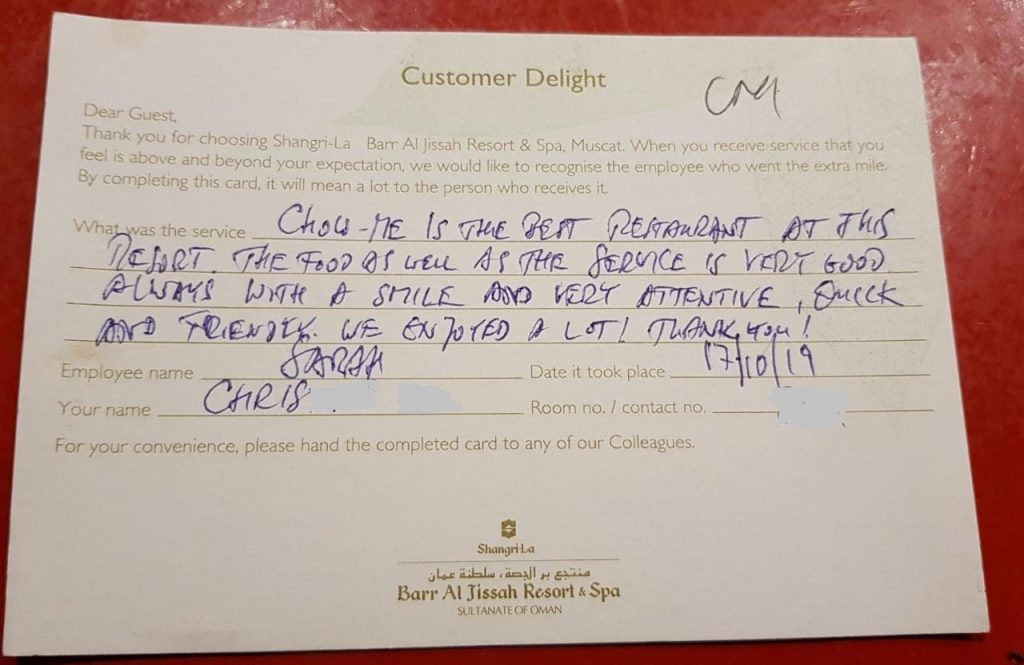 Customer Delight
CM
Dear Guest,
Thank you for choosing Shangri-La Barr Al Jissah Resort & Spa, Muscat. When you receive service that you
feel is above and beyond your expectation, we would like to recognise the employee who went the extra mile.
By completing this card, it will mean a lot to the person who receives it.
What was the service CHOW-ME IS THE BEST RESTAURANT AT THIS
RESORT. THE FOOD AS WELL AS THE SERVICE IS VERY GOOD
ALWAYS WITH A SMILE AND VERY ATTENTIVE, QUICK
AND FRIENDLY. WE ENJOYED A LOT! THANK YOU!
Employee name SARAH Date it took place 17/10/19
Your name CHRIS Room no. / contact no.
For your convenience, please hand the completed card to any of our Colleagues.
Shangri-La
منتجع بر الجصة، سلطنة عمان
Barr Al Jissah Resort & Spa
SULTANATE OF OMAN